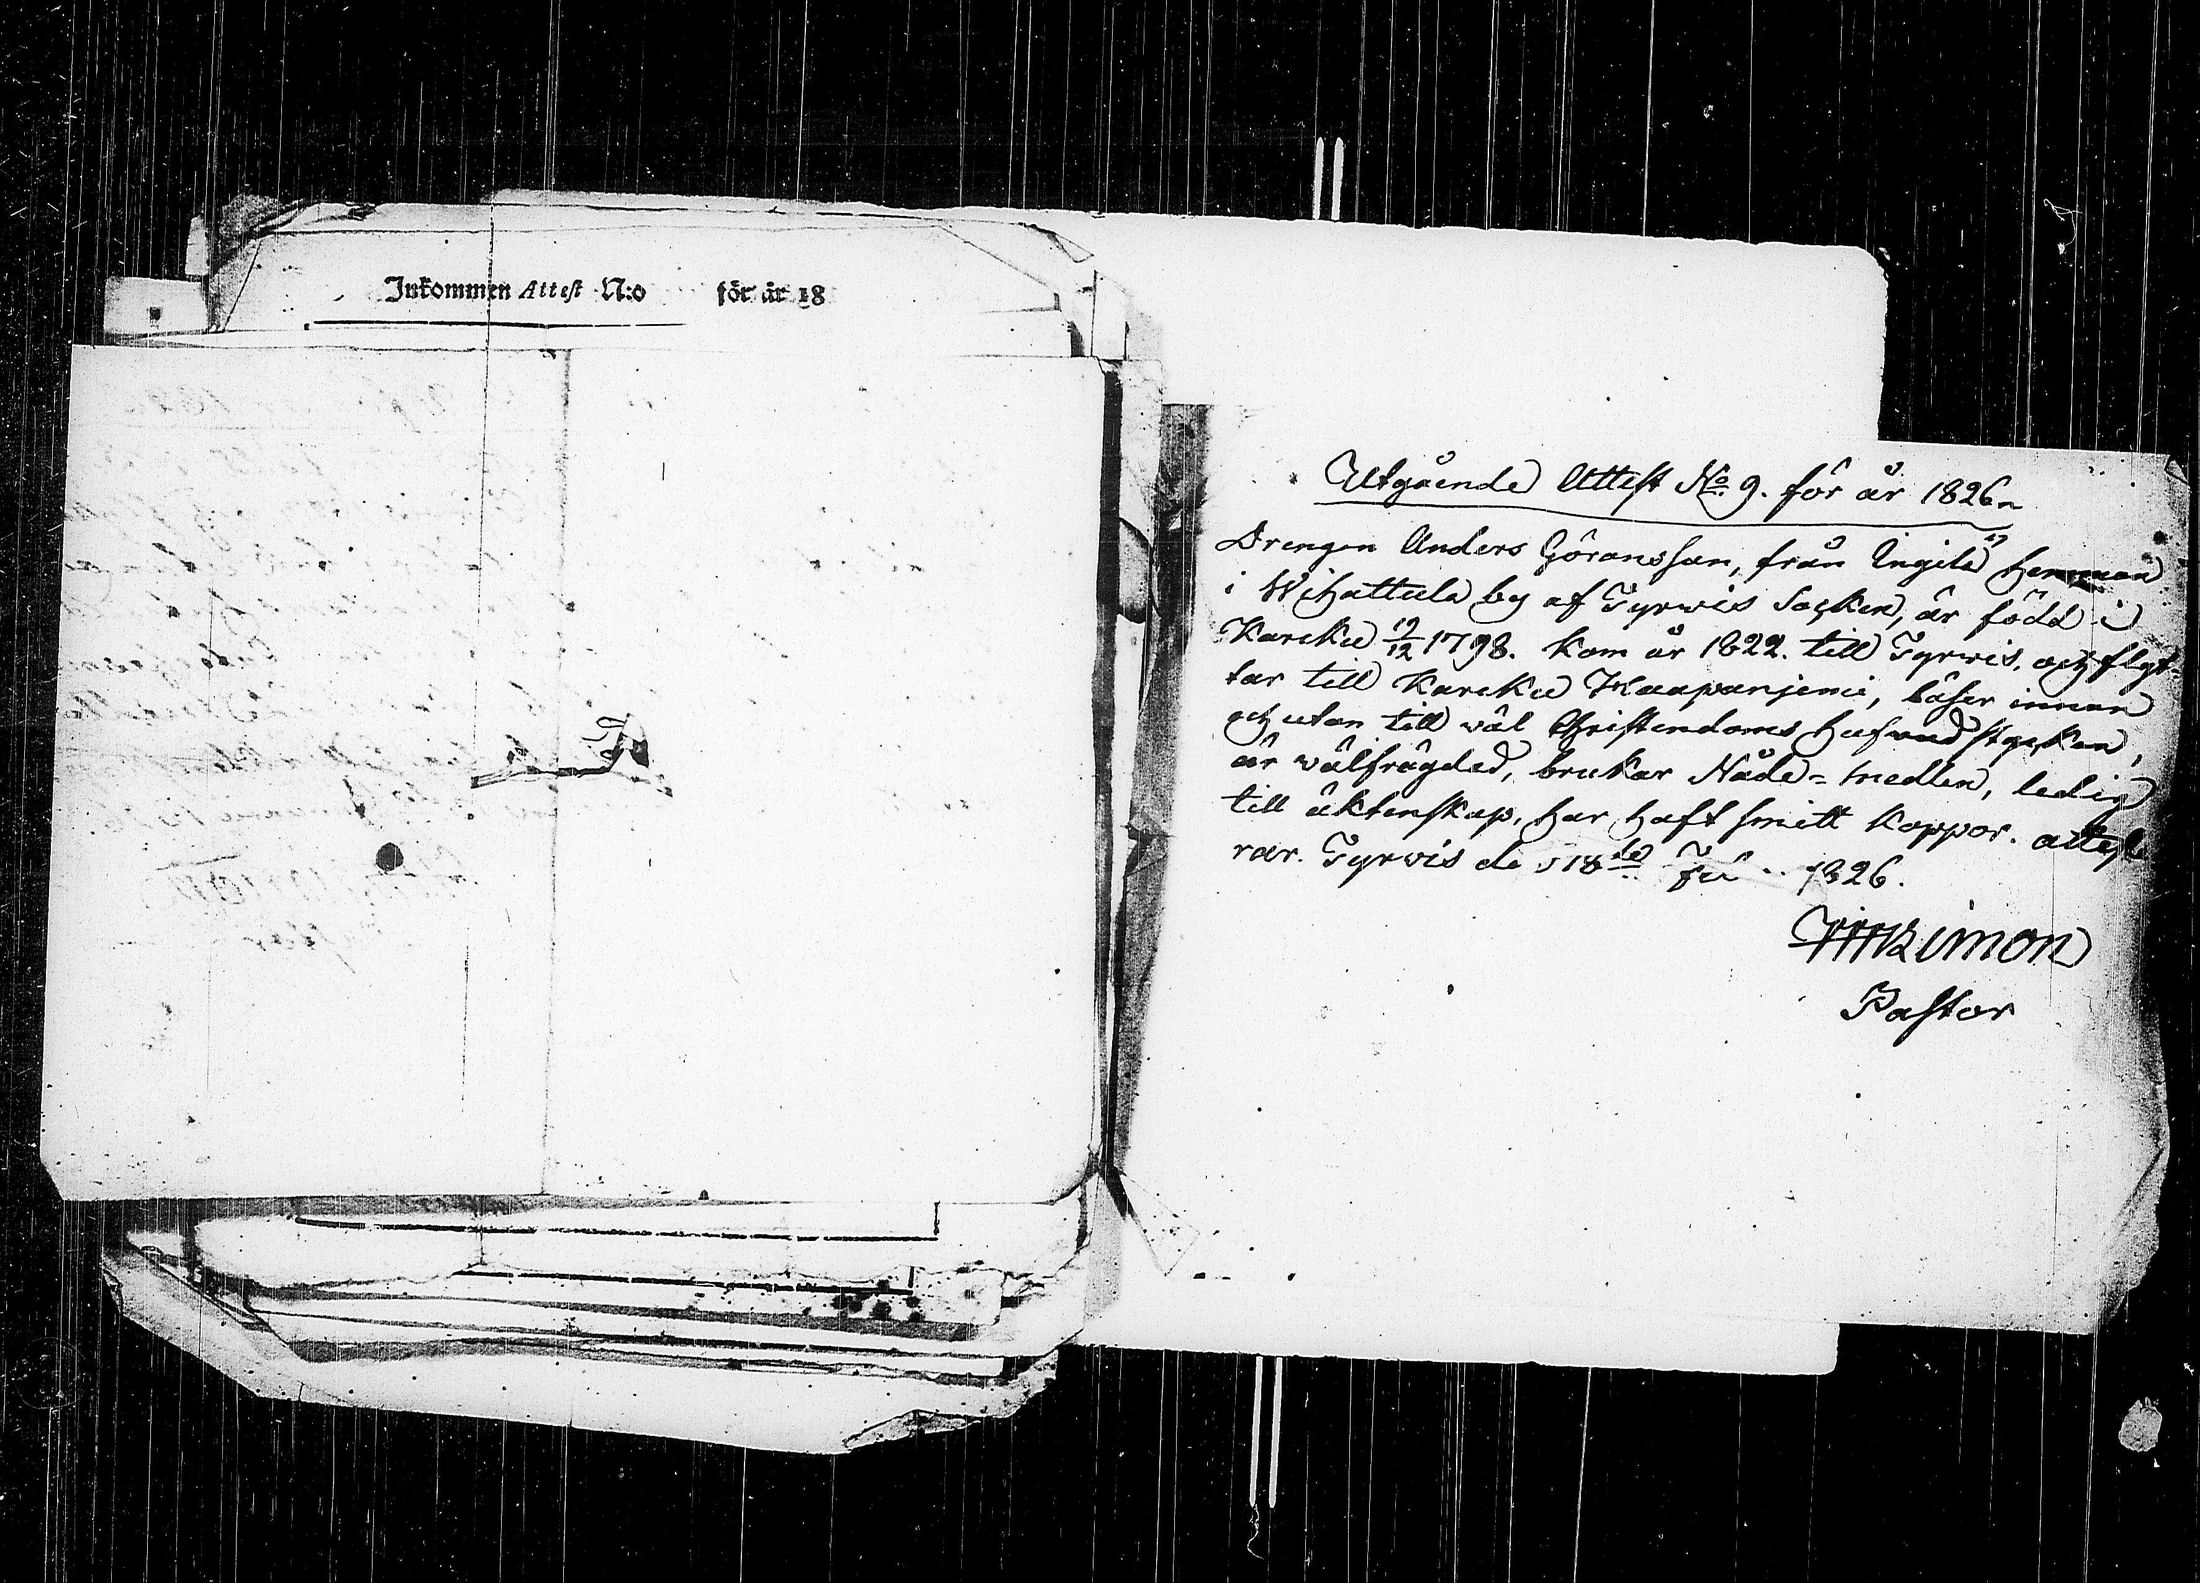 Inkommen Attest N:o för år 18
Utgående Attest No 9. för år 1826
Drengen Anders Göransson, från Ingila hemman
i Wihattula by af Tyrwis Socken, är född i
Karcku 19/12 1798. kom år 1822. till Tyrwis, och flyt-
tar till Karcku Haapanjemi, läser innan
och utan till wäl Christendoms hufwud stycken,
är wälfrägdad, brukar Nåde-medlen, ledig
till äktenskap, har haft smitt koppor. atteste
rar. Tyrwis de 18de 1826.
Pastor